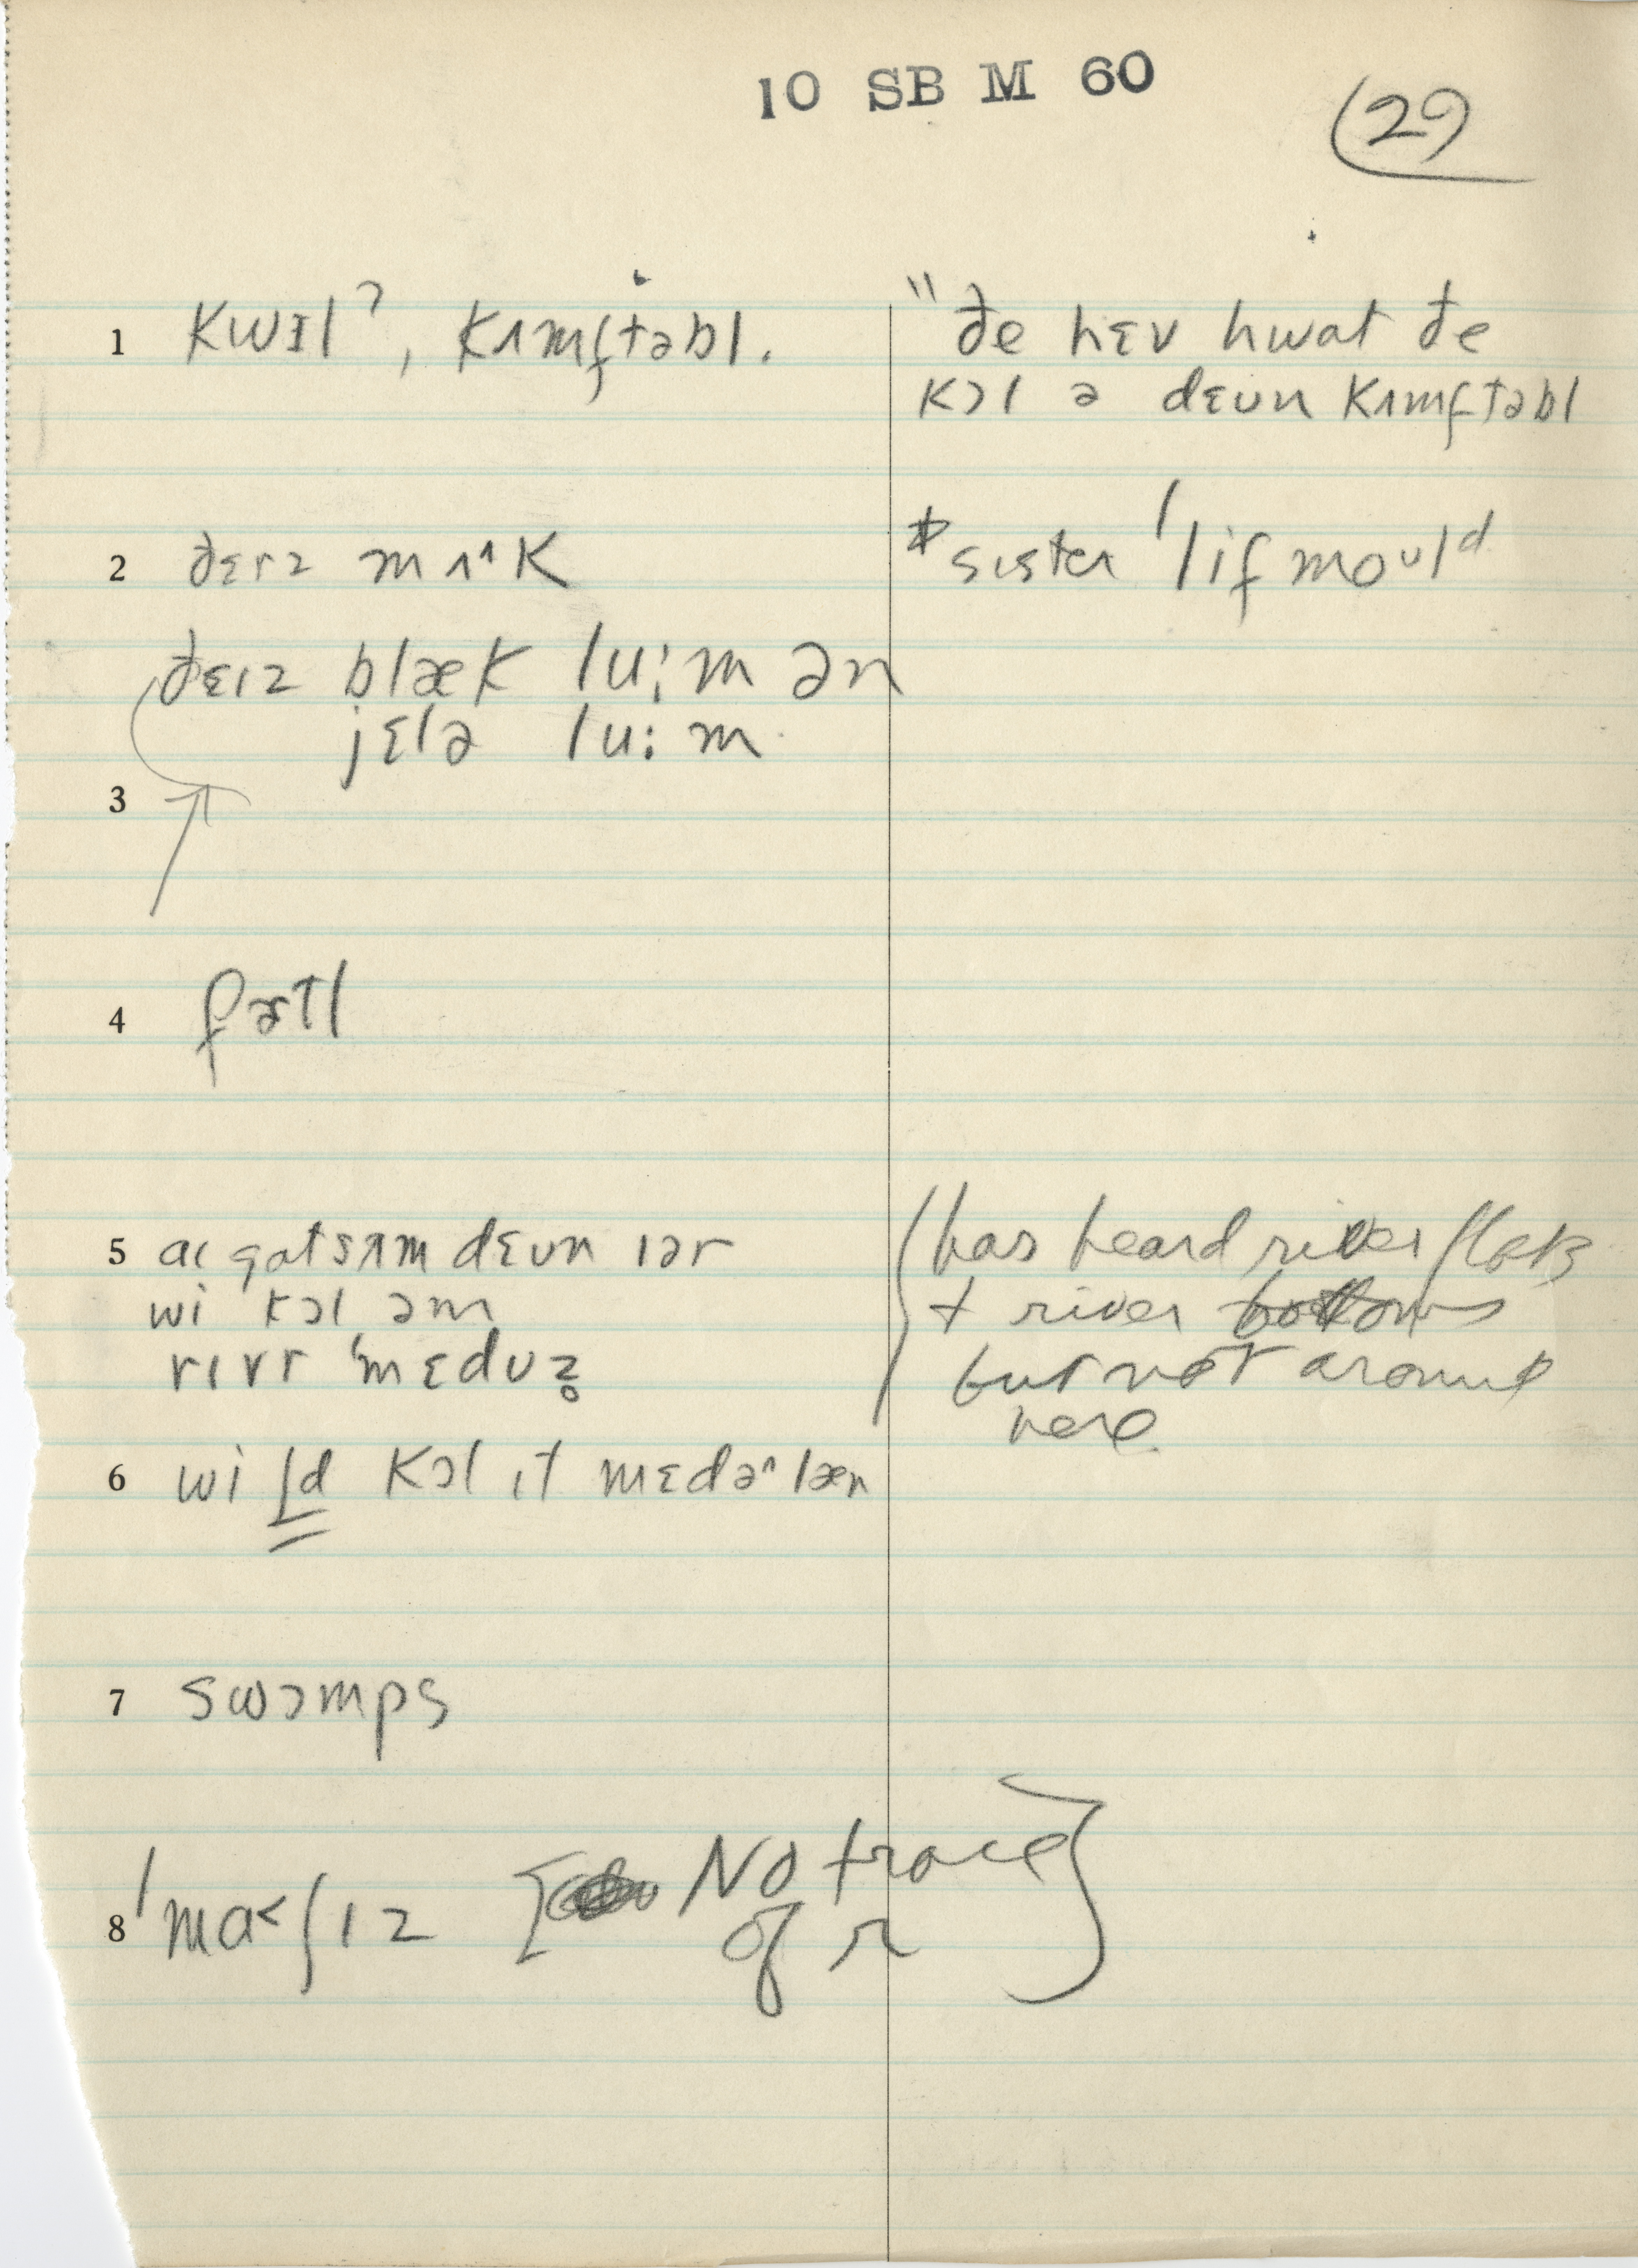 10 SB M 60
29
1 kwɪl?, kʌmftəbl.
"ðe hɛv hwat ðe
kɔl ə dɛʊn kʌmftəbl
2 ðɛrz mʌ^k
* sɪstər 'lif moʊld
ðɛɪz blæk lu:m ən
jɛlə lu:m
3
4 fɚtl
5 aɪ gɑt sʌm dɛʊn ɪər
wi kɔl əm
rɪvr 'mɛdʊz̥
(has heard river flats
+ river bottoms
but not around
here
6 wi ld kɔl ɪt mɛdəʌlæn
7 swɔmps
8 'ma<ʃɪz [No trace
of r]